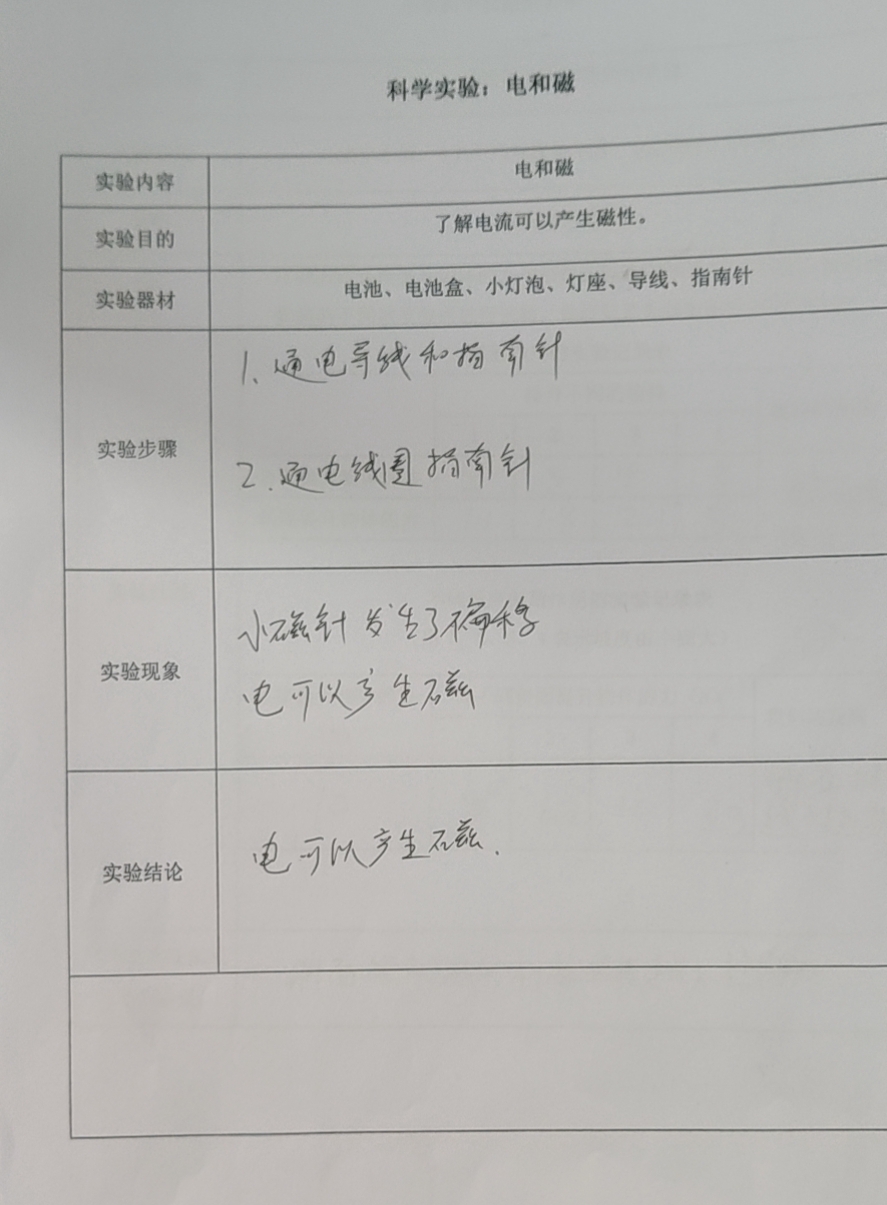 科学实验：电和磁
实验内容 电和磁
实验目的 了解电流可以产生磁性。
实验器材 电池、电池盒、小灯泡、灯座、导线、指南针
实验步骤
1、通电导线和指南针
2、通电线圈指南针
实验现象
小磁针发生了偏移
电可以产生磁
实验结论
电可以产生磁.